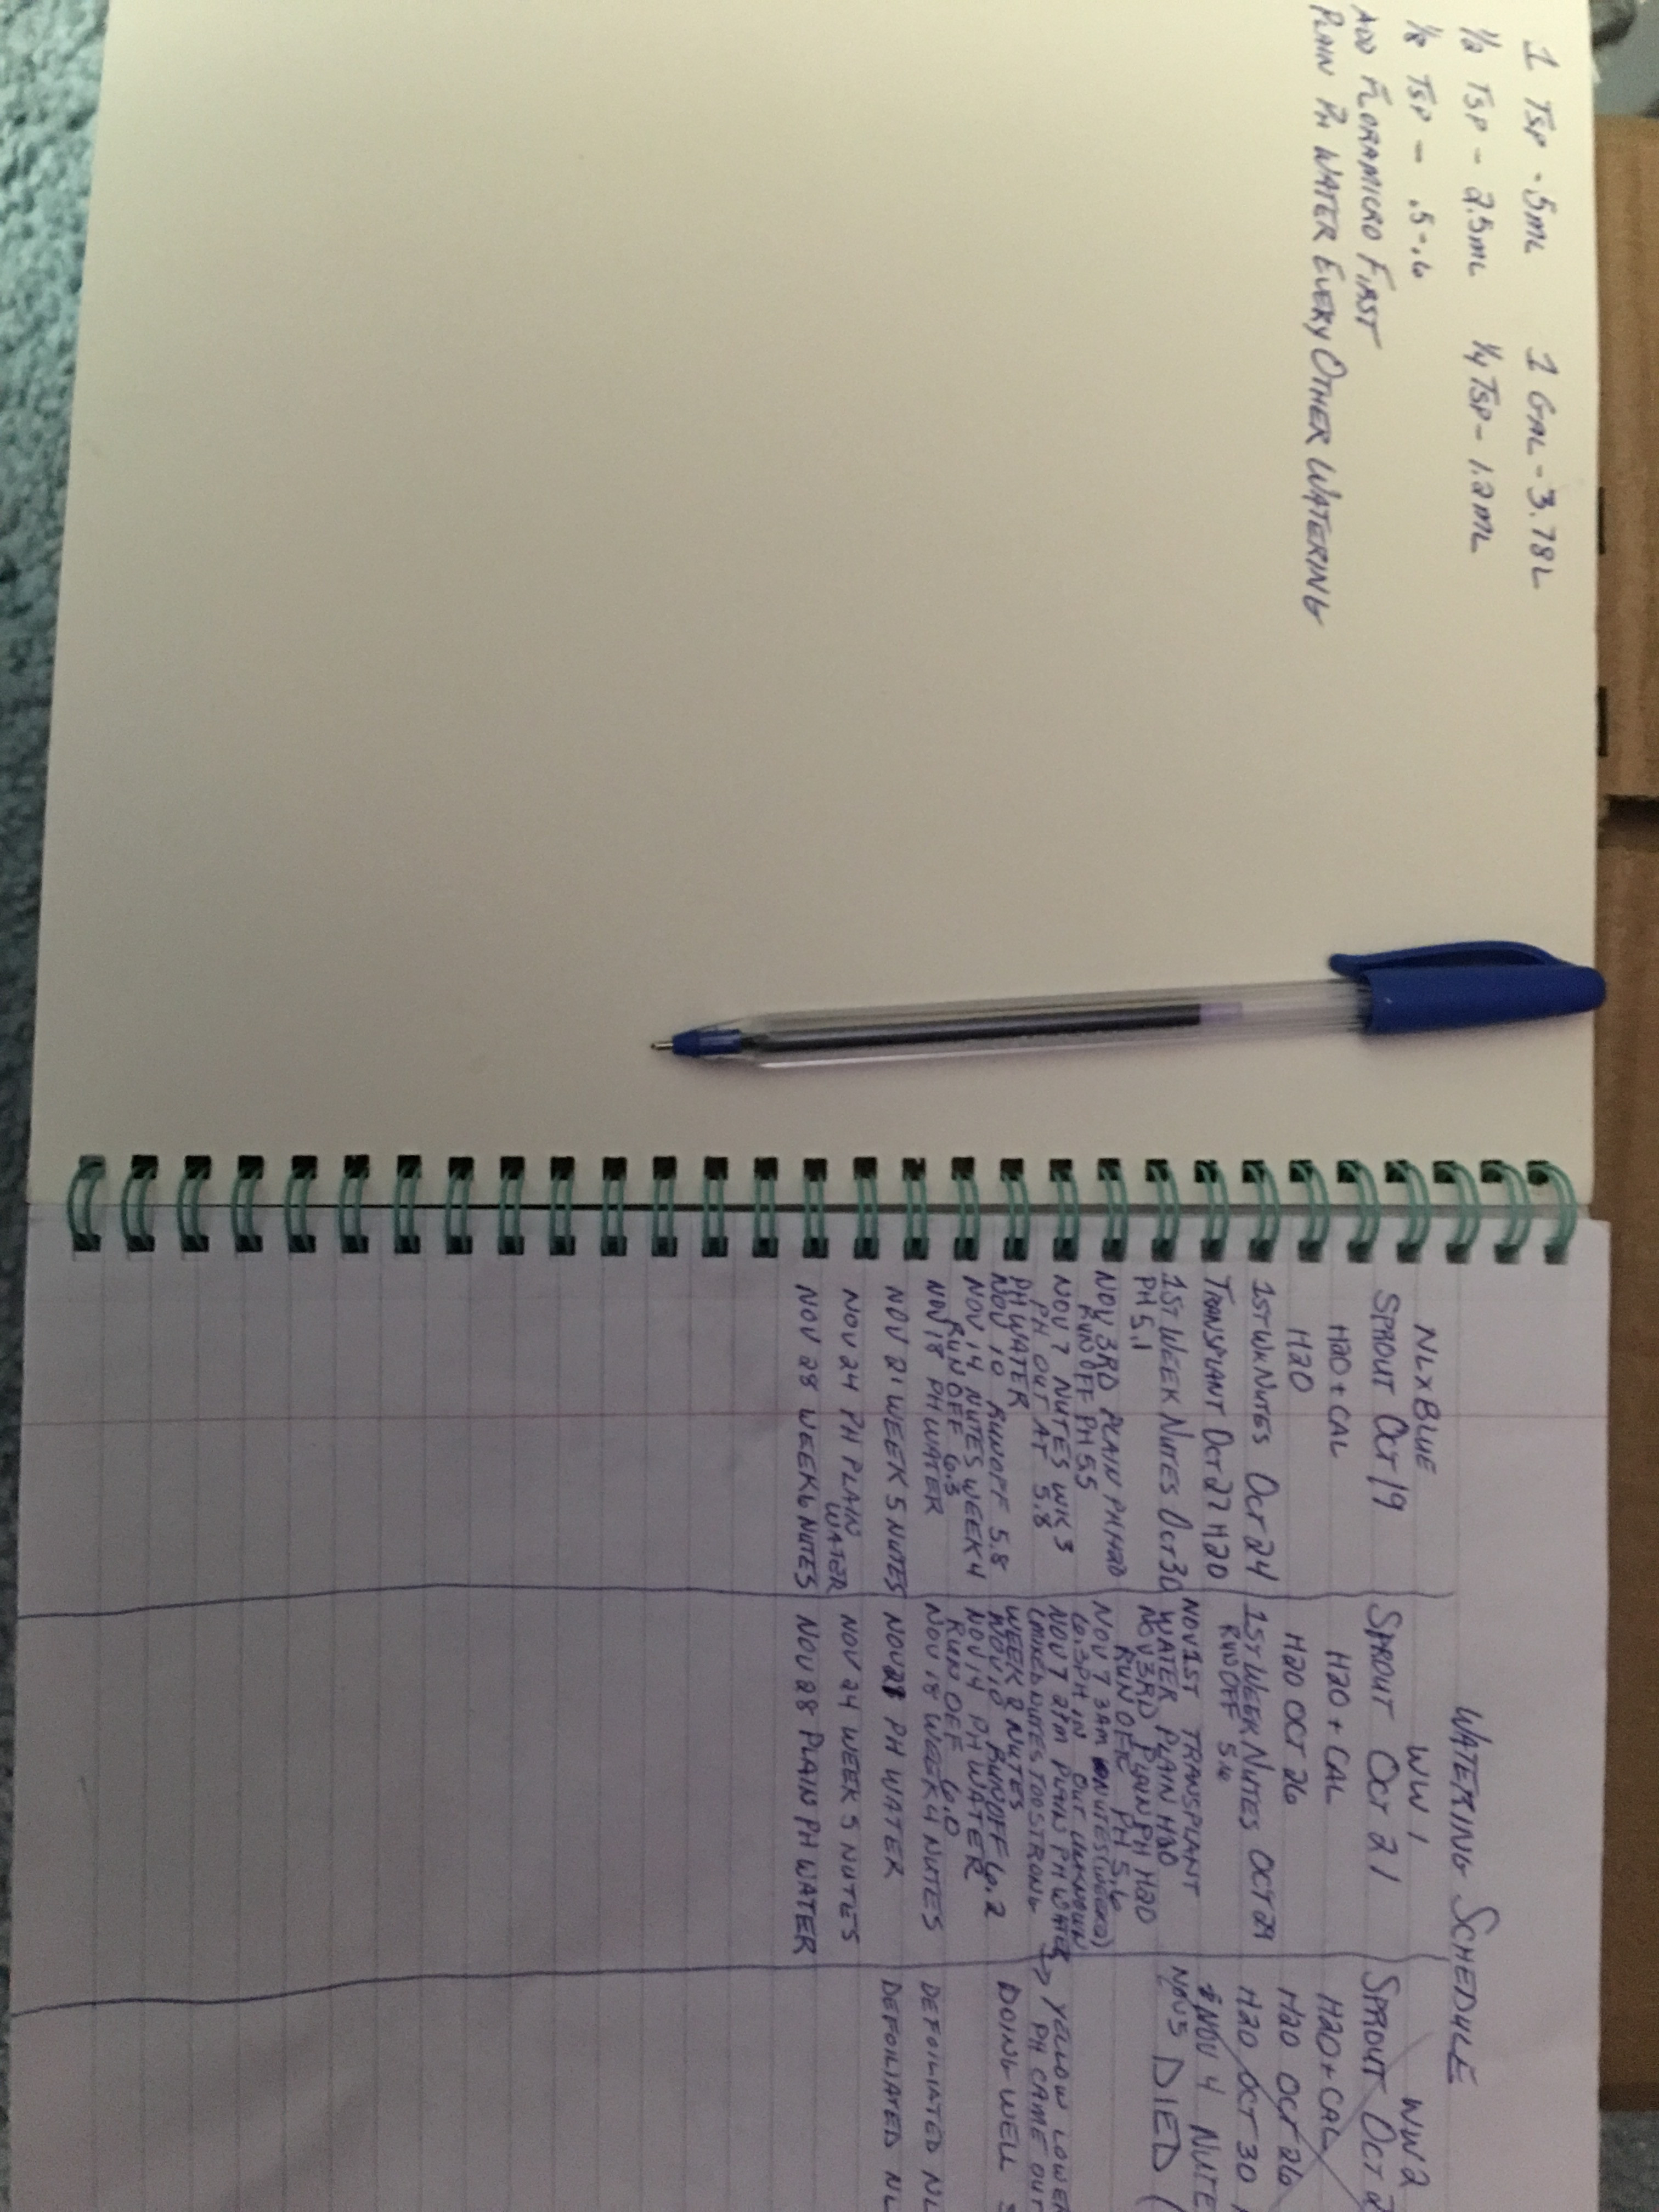 1 TSP - 5ML   1 GAL - 3.78L
1/2 TSP - 2.5ML   1/4 TSP - 1.2ML
1/8 TSP - .5-.6
ADD FLORAMICRO FIRST
PLAIN PH WATER EVERY OTHER WATERING
WATERING SCHEDULE
NLXBLUE
SPROUT OCT 19
H20 + CAL
H20
1ST WK NUTES OCT 24
TRANSPLANT OCT 27 H20
1ST WEEK NUTES OCT 30
PH 5.1
NOV 3RD PLAIN PH H20
RUN OFF PH 5.5
NOV 7 NUTES WK 3
PH OUT AT 5.8
PH WATER
NOV 10 RUNOFF 5.8
NOV 14 NUTES WEEK 4
RUN OFF 6.3
NOV 18 PH WATER
NOV 21 WEEK 5 NUTES
NOV 24 PH PLAIN
WATER
NOV 28 WEEK 6 NUTES
WW 1
SPROUT OCT 21
H20 + CAL
H20 OCT 26
1ST WEEK NUTES OCT 29
RUNOFF 5.6
NOV 1ST TRANSPLANT
WATER PLAIN H20
NOV 3RD PLAIN PH H20
RUN OFF PH 5.6
NOV 7 3AM NUTES (WEEK 2)
6.3 PH IN OUT UNKNOWN
NOV 7 2PM PLAIN PH WATER
(MIXED NUTES TOO STRONG
WEEK 2 NUTES
NOV 10 RUNOFF 6.2
NOV 14 PH WATER
RUN OFF 6.0
NOV 18 WEEK 4 NUTES
NOV 21 PH WATER
NOV 24 WEEK 5 NUTES
NOV 28 PLAIN PH WATER
WW 2
SPROUT OCT 2
H20 + CAL
H20 OCT 26
H20 OCT 30
NOV 4 NUTE
NOV 5 DIED (
→ YELLOW LOWER
PH CAME OUT
DOING WELL
DEFOILIATED NL
DEFOILIATED NL